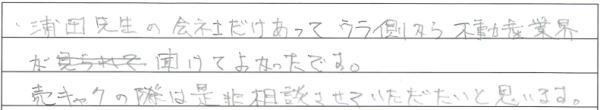 ・浦田先生の会社だけあってウラ側から不動産業界
が見られて聞けてよかったです。
売キャクの際は是非相談させていただだいと思います。